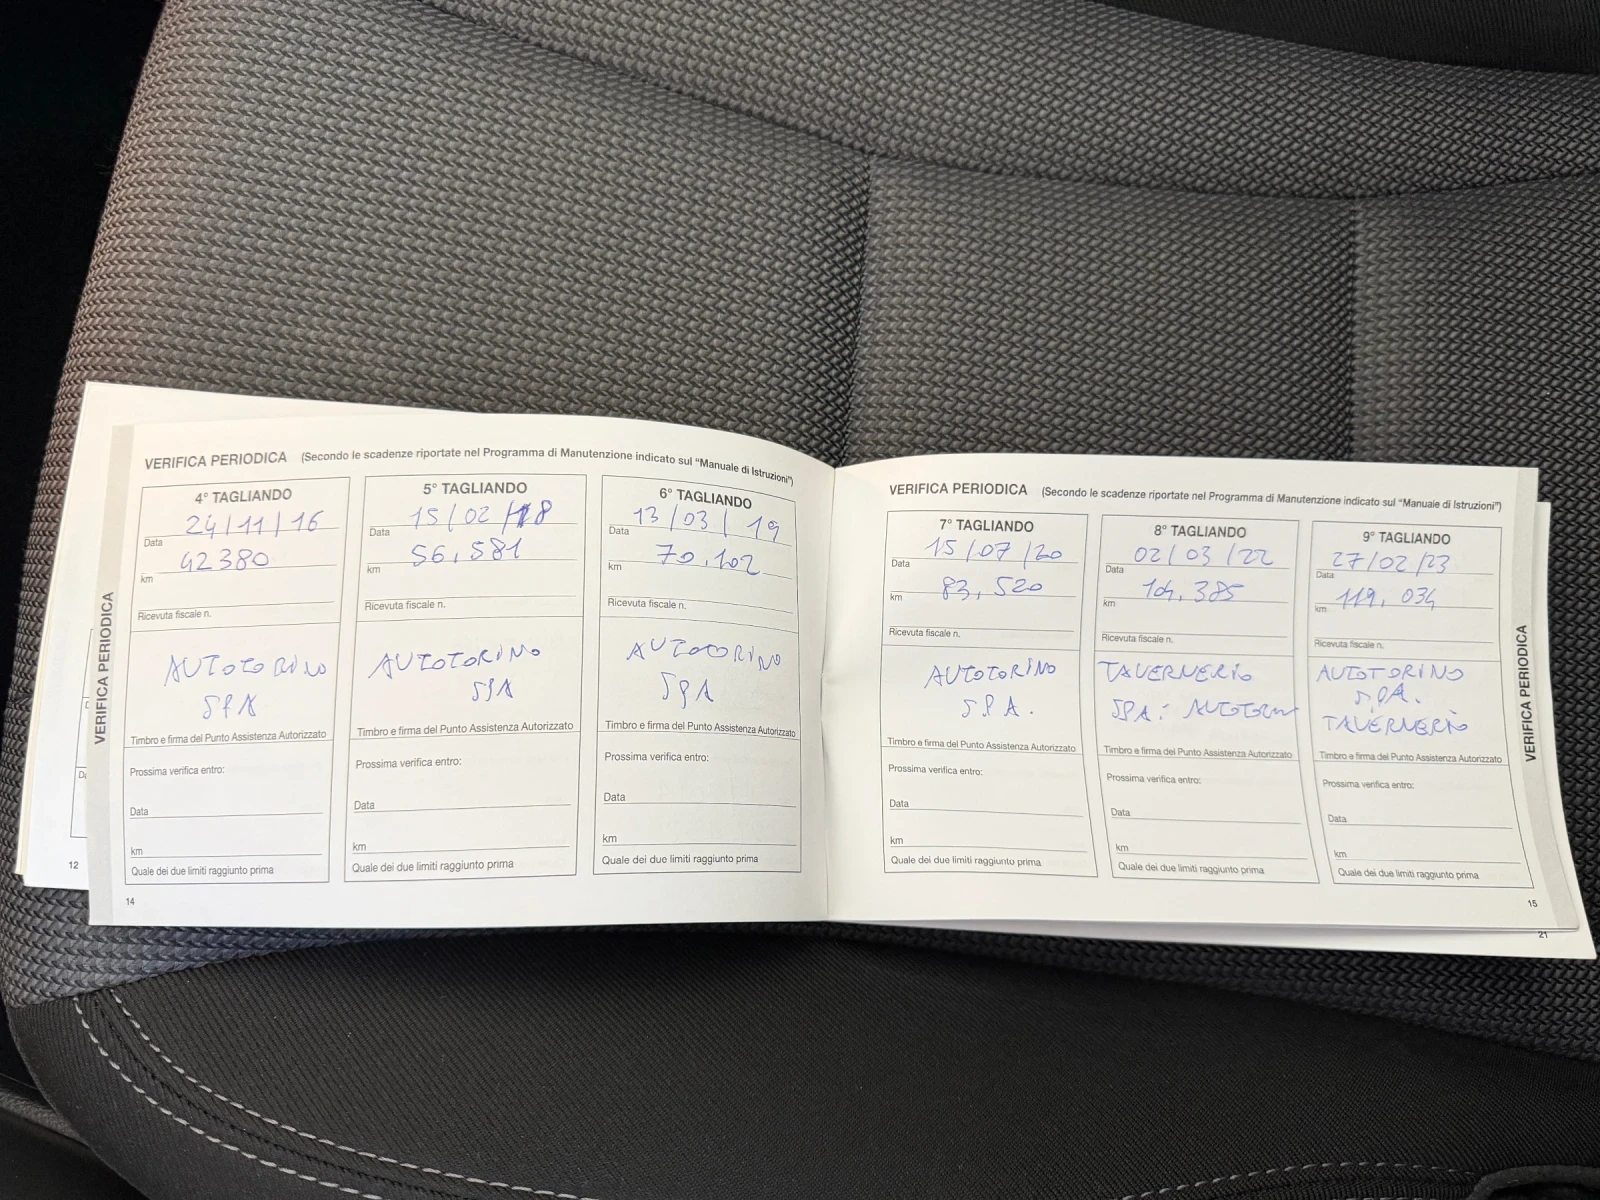 VERIFICA PERIODICA (Secondo le scadenze riportate nel Programma di Manutenzione indicato sul “Manuale di Istruzioni”)
VERIFICA PERIODICA
4° TAGLIANDO
24/11/16
Data
42380
km
Ricevuta fiscale n.
AUTOTORINO
SPA
Timbro e firma del Punto Assistenza Autorizzato
Prossima verifica entro:
Data
km
Quale dei due limiti raggiunto prima
5° TAGLIANDO
15/02/18
Data
56.581
km
Ricevuta fiscale n.
AUTOTORINO
SPA
Timbro e firma del Punto Assistenza Autorizzato
Prossima verifica entro:
Data
km
Quale dei due limiti raggiunto prima
6° TAGLIANDO
13/03/19
Data
70.102
km
Ricevuta fiscale n.
AUTOTORINO
SPA
Timbro e firma del Punto Assistenza Autorizzato
Prossima verifica entro:
Data
km
Quale dei due limiti raggiunto prima
12
14
VERIFICA PERIODICA (Secondo le scadenze riportate nel Programma di Manutenzione indicato sul “Manuale di Istruzioni”)
7° TAGLIANDO
15/07/20
Data
83.520
km
Ricevuta fiscale n.
AUTOTORINO
S.P.A.
Timbro e firma del Punto Assistenza Autorizzato
Prossima verifica entro:
Data
km
Quale dei due limiti raggiunto prima
8° TAGLIANDO
02/03/22
Data
km
Ricevuta fiscale n.
TAVERNERIO
SPA.
Timbro e firma del Punto Assistenza Autorizzato
Prossima verifica entro:
Data
km
Quale dei due limiti raggiunto prima
9° TAGLIANDO
27/02/23
Data
119.034
km
Ricevuta fiscale n.
AUTOTORINO
S.P.A.
TAVERNERIO
Timbro e firma del Punto Assistenza Autorizzato
Prossima verifica entro:
Data
km
Quale dei due limiti raggiunto prima
VERIFICA PERIODICA
15
21